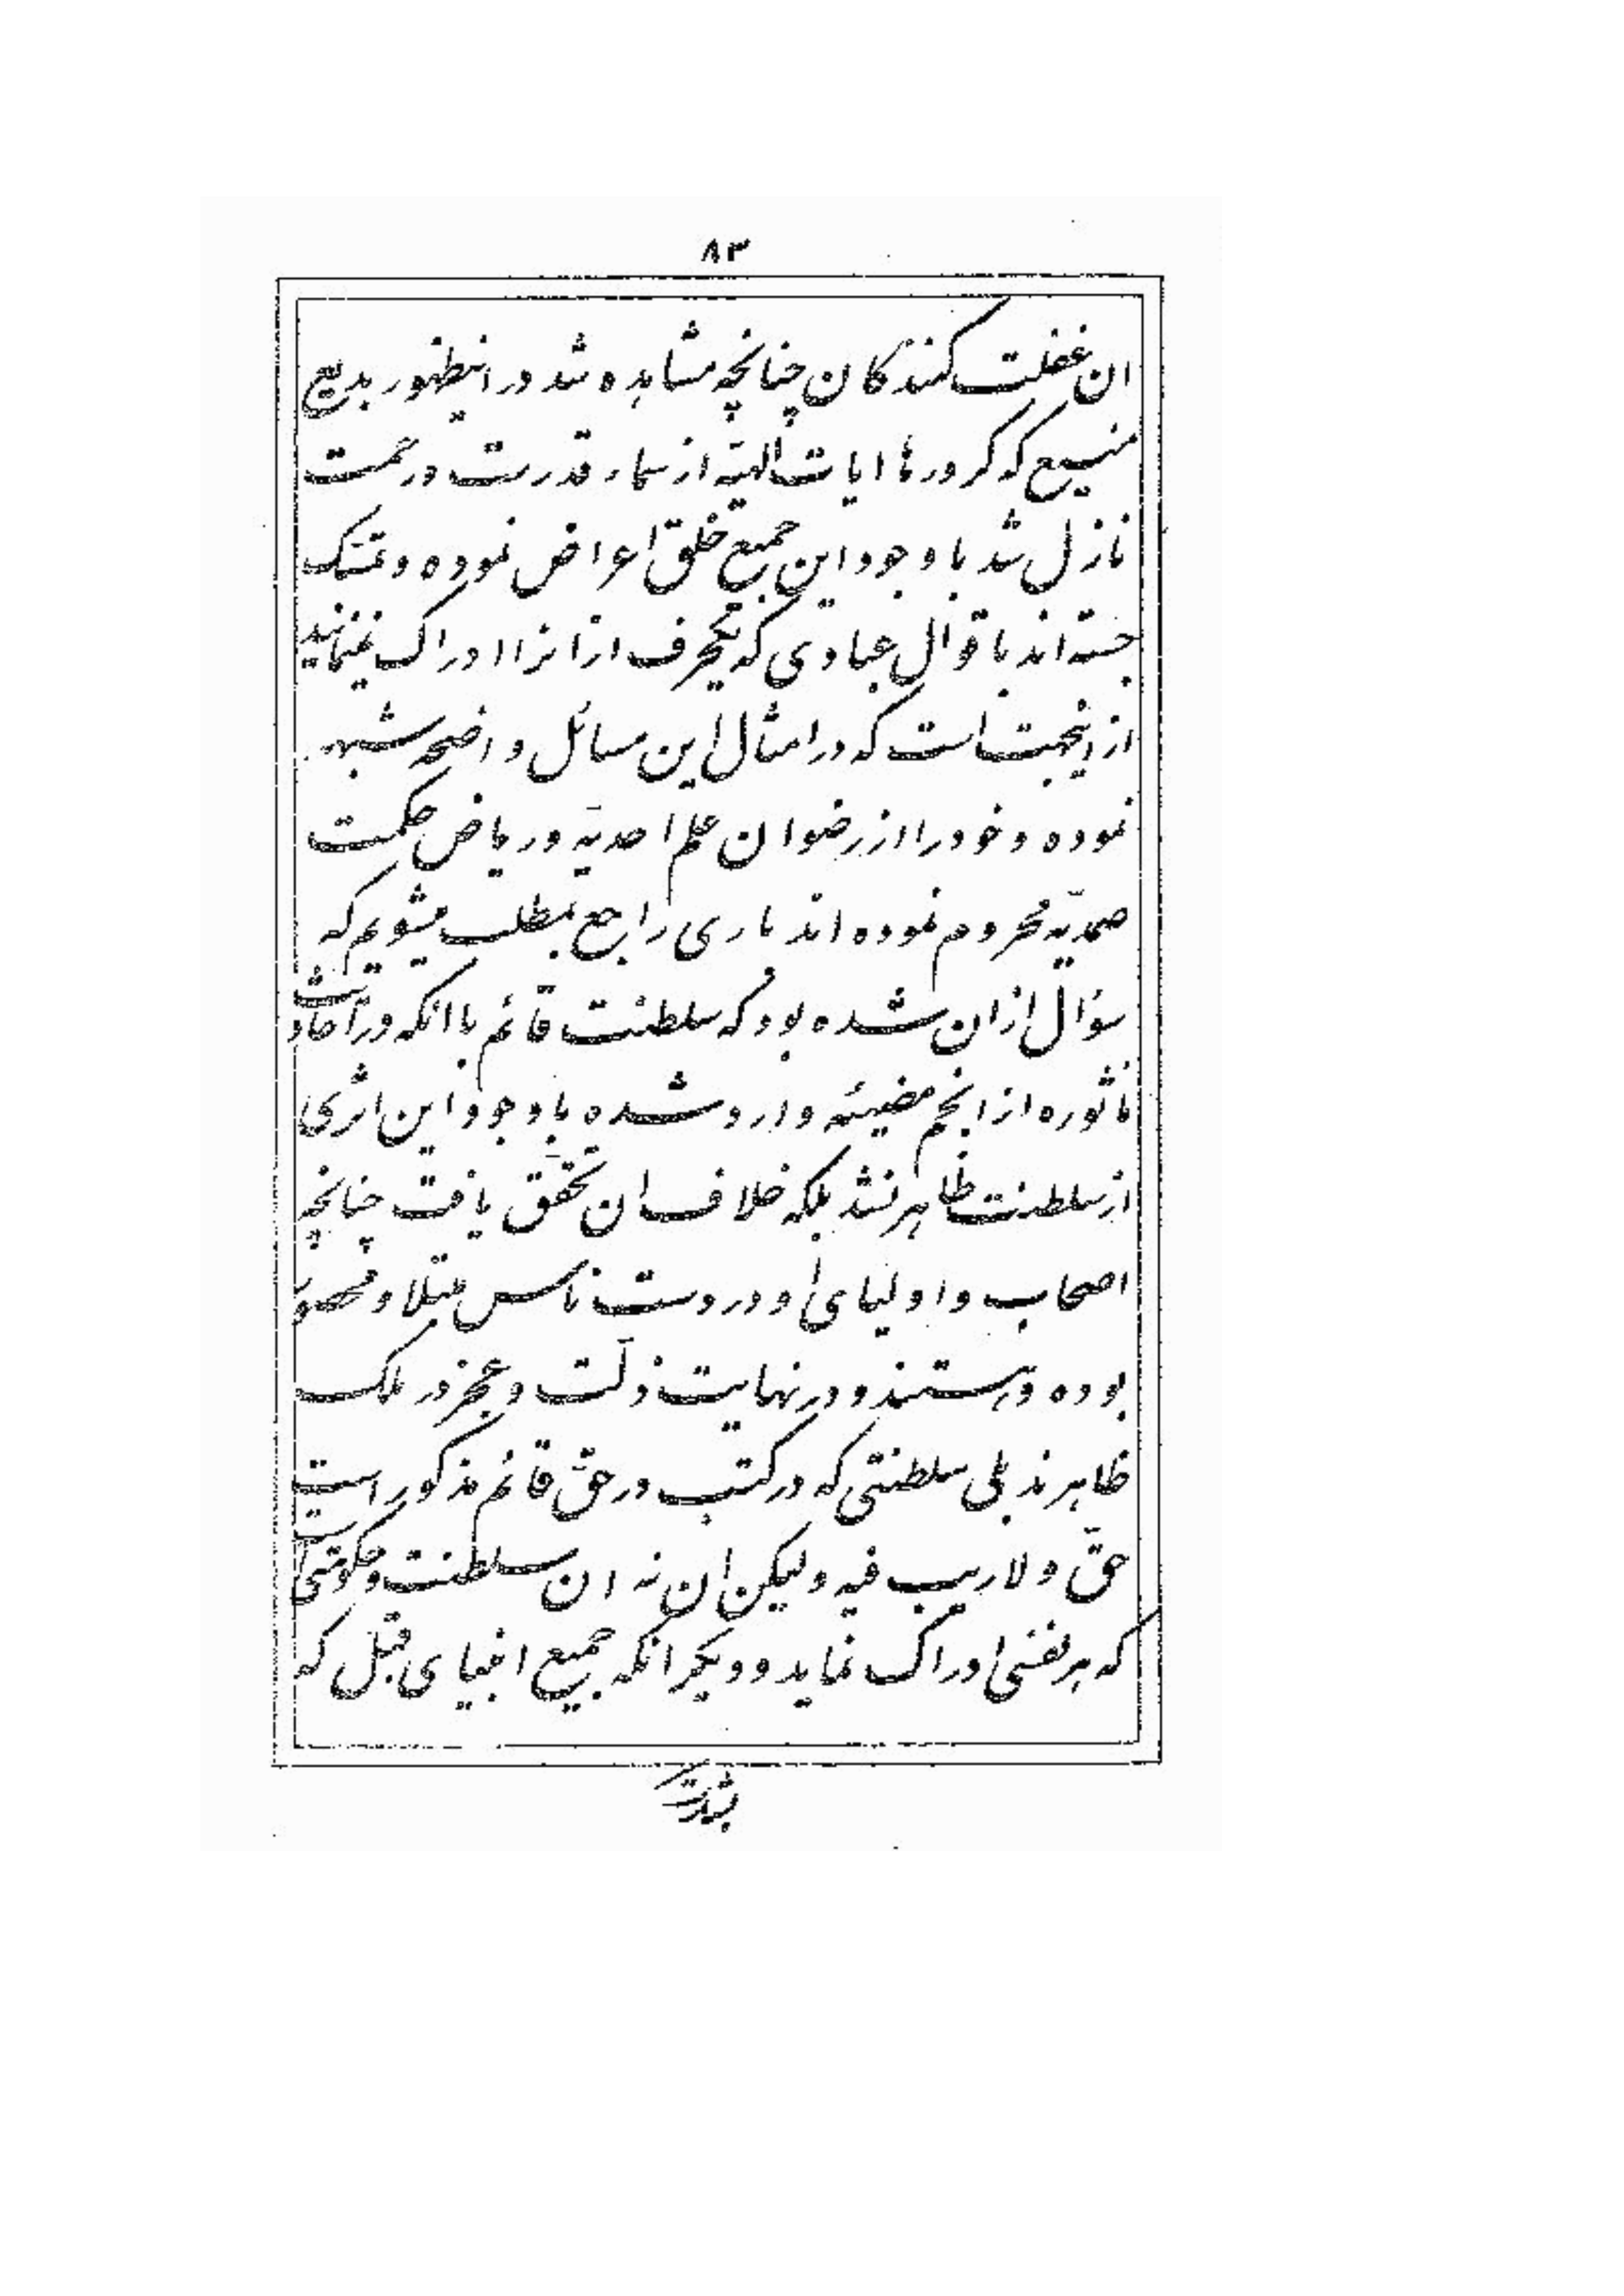 ٨٣
ان غفلت کنندکان چنانچه مشاهده شد در اینظهور بدیع
منیع که کرورها ایات الهیّه از سماء قدرت و رحمت
نازل شد با وجود این جمیع خلق اعراض نموده و تمسّک
جسته اند باقوال عبادی که یکحرف از انرا ادراک نمینمایند
از اینجهت است که در امثال این مسائل واضحه شبهه
نموده و خود را از رضوان علم احدیّه و ریاض حکمت
صمدیّه محروم نموده اند باری راجع بمطلب میشویم که
سؤال از ان شده بود که سلطنت قائم با انکه در احادیث
ماثوره از انجم مضیئه وارد شده با وجود این اثری
از سلطنت ظاهر نشد بلکه خلاف ان تحقّق یافت چنانچه
اصحاب و اولیای او در دست ناس مبتلا و محصور
بوده و هستند و در نهایت ذلّت و عجز در ملک
ظاهرند بلی سلطنتی که در کتب در حقّ قائم مذکور است
حقّ و لا ریب فیه ولیکن ان نه ان سلطنت و حکومتی است
که هر نفسی ادراک نماید و دیگر انکه جمیع انبیای قبل که
بشارت